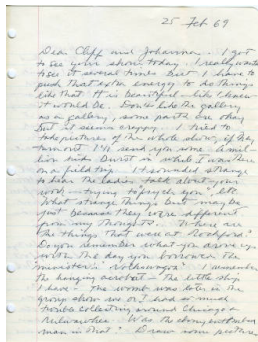 25 Feb 69
Dear Cliff and Johanna - I got
to see your show today. I really want
to see it several times but I have to
push that extra energy to do things
like that. It is beautiful - like I knew
it would be. Don't like the gallery
as a gallery, some parts are okay
but it seems creepy. I tried to
take pictures of the whole show, if they
turn out I'll send you some. A mil-
lion kids burst in while I was there
on a field trip. It sounded strange
to hear the ladies talk about your
work - trying to psych you" etc.
What strange things but maybe
just because they were different
from my thoughts. Where are
the things that were at Rockford.
Do you remember what you drove up
with the day you borrowed the
minister's Volkswagon? I remember
the hanging acrobat - the little ship
I have - the womb was later in the
group show we or I had so much
trouble collecting around Chicago -
Milwaukee. Was the
man in that? Draw some pictures